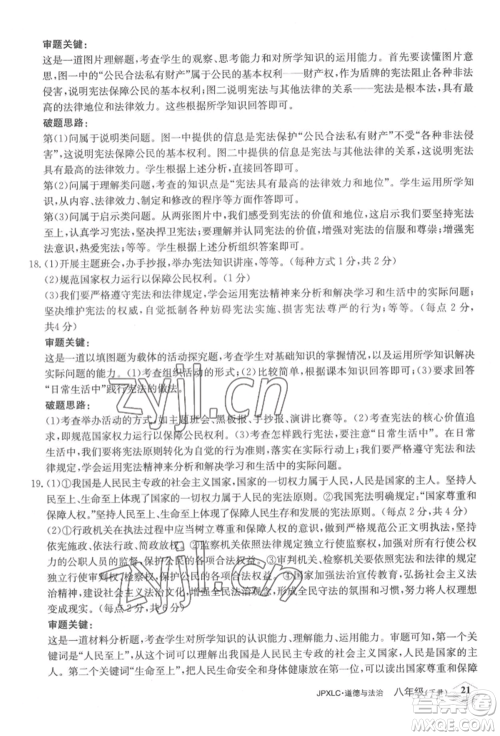 审题关键:
这是一道图片理解题,考查学生的观察、思考能力和对所学知识的运用能力。首先要读懂图片意
思,图一中的"公民合法私有财产"属于公民的基本权利——财产权,作为盾牌的宪法阻止了"非法
侵害",说明宪法保护公民的基本权利;图二说明宪法是其他法律的立法基础和立法依据,具有最
高的法律地位和法律效力。然后根据所学知识回答即可。
破题思路:
第(1)问属于说明类问题。图一中提供的信息是宪法保护"公民合法私有财产"不受"非法侵
害",说明宪法保障公民的基本权利;图二中提供的信息是宪法和其他法律的关系,说明宪法具有
最高的法律效力。
第(2)问属于理解类问题。考查的知识点是"宪法具有最高的法律效力和地位",根据所学知识
回答即可。
第(3)问属于启示类问题。从两张图片中,我们认识到宪法的重要性,因此,我们要自觉树立宪
法意识,自觉学习宪法、坚持宪法至上、坚决捍卫宪法、自觉同违反宪法的行为作斗争、增强宪
法意识、树立宪法权威、弘扬宪法精神等。学生据此组织答案即可。
18.(1)开展主题班会,办手抄报,举办宪法知识讲座,等等。(每种方式1分,共2分)
(2)规范国家权力运行以保障公民权利。(2分)
(3)①我们要严格遵守宪法和法律规定,运用宪法精神来分析和解决学习和生活中的实际问题;
②坚决维护宪法权威,自觉抵制各种妨碍宪法实施、损害宪法尊严的行为。(每点2分,
共4分)
审题关键:
这是一道以填图题为载体的活动探究题,考查学生对基础知识的掌握情况,以及运用所学知识解决
实际问题的能力。(1)图文结合,紧扣主题回答;(2)比较简单,根据课本知识回答即可;(3)要求回答
"日常生活中"践行宪法的做法。
破题思路:
(1)考查举办活动的方式,如主题班会、黑板报、手抄报、演讲比赛等。(2)考查宪法的核心价值追
求,即规范国家权力运行以保障公民权利。(3)我们要将宪法原则转化为自觉行动,在日常生活中严
格遵守宪法和法律规定,运用宪法精神来分析和解决学习和生活中的实际问题。
19.(1)①我国是人民民主专政的社会主义国家,国家的一切权力属于人民,人民是国家的主人。坚持人
民至上、生命至上,体现了我国一切权力属于人民的宪法原则。②我国宪法规定,"国家尊重和保
障人权"。坚持人民至上、生命至上,体现了我国尊重和保障人权的宪法原则。(每点2分,共4分)
(2)①行政机关在执法过程中应当做到严格规范公正文明执法,维护广大人民的合法权益,提升人
民的获得感、幸福感、安全感。②监察机关依法独立行使监察权,加强对所有行使公权力
的公职人员的监督,保护公民的各项合法权益。③司法机关坚持以事实为根据,以法律为准绳,依法
独立行使审判权、检察权,保护公民的各项合法权益。④国家加强法治宣传教育,弘扬社会主义法
治精神,建设社会主义法治文化,增强全民法治观念,使尊法学法守法用法成为全体人民的共同追
求。(每点2分,写出三点即可,共6分)
审题关键:
这是一道材料分析题,考查学生对所学知识的认识能力、理解能力、运用能力。审题可知,第一个
关键词是"人民至上",关联我国是人民民主专政的社会主义国家,国家的一切权力属于人民;第二
个关键词是"生命至上",由此联想到最大的人权是生命权,进而关联"尊重和保障人权"。
JPXLC·道德与法治 八年级(下册) 21
zyjl.cn
zyjl.cn